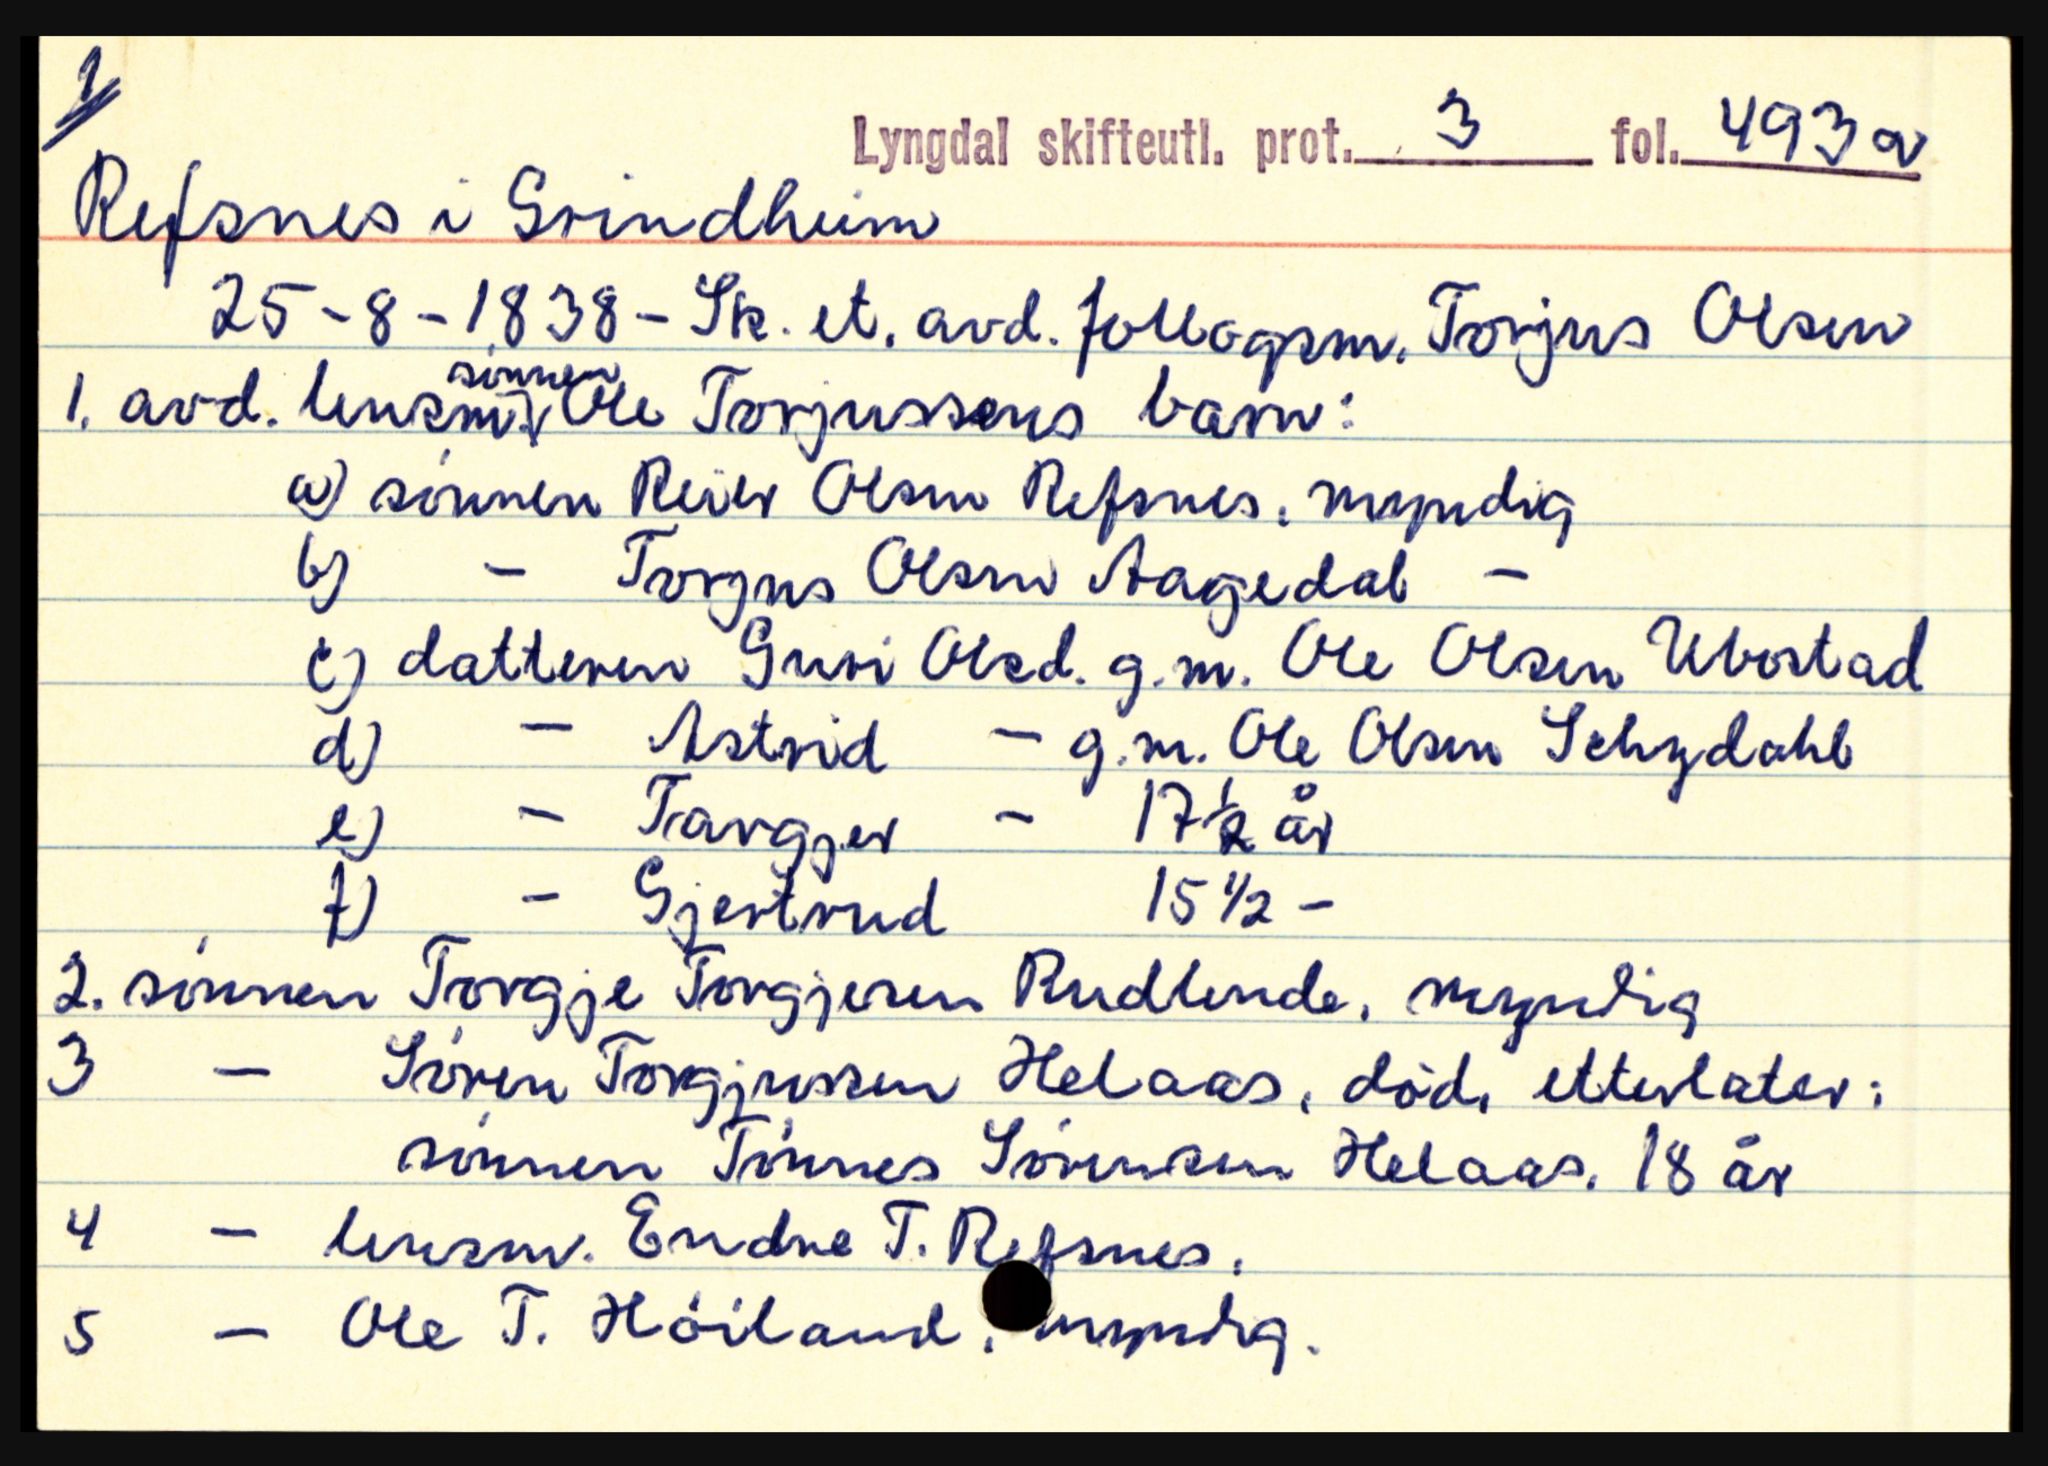 1
Lyngdal skifteutl. prot. 3 fol. 493 a
Refsnes i Grindheim
25-8-1838 - Sk. et. avd. follogsm. Torjus Olsen
sønnen
1. avd. lensm. Ole Torjussens barn:
a) sønnen Reier Olsen Refsnes, myndig
b) - Torgus Olsen Aagedal -
c) datteren Guri Olsd. g.m. Ole Olsen Ubostad
d) - Astrid - g.m. Ole Olsen Schydahl
e) - Targjer - 17 1/2 år
f) - Gjertrud 15 1/2 -
2. sønnen Torgje Torgjesen Rudlende, myndig
3 - Søren Torgjussen Helaas, død, etterlater:
sønnen Tønnes Sørensen Helaas. 18 år
4 - lensm. Endre T. Refsnes.
5 - Ole T. Höiland, myndig.